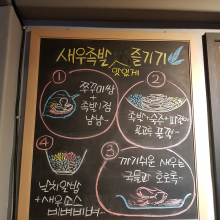 새우족발 즐기기
맛있게
①
쭈꾸미쌈
+
족발1점
냠냠~
②
족발+숙주+파채
쫄깃~
③
까기쉬운 새우는
국물과 호로록~
④
날치알밥
+새우소스
비벼비벼~